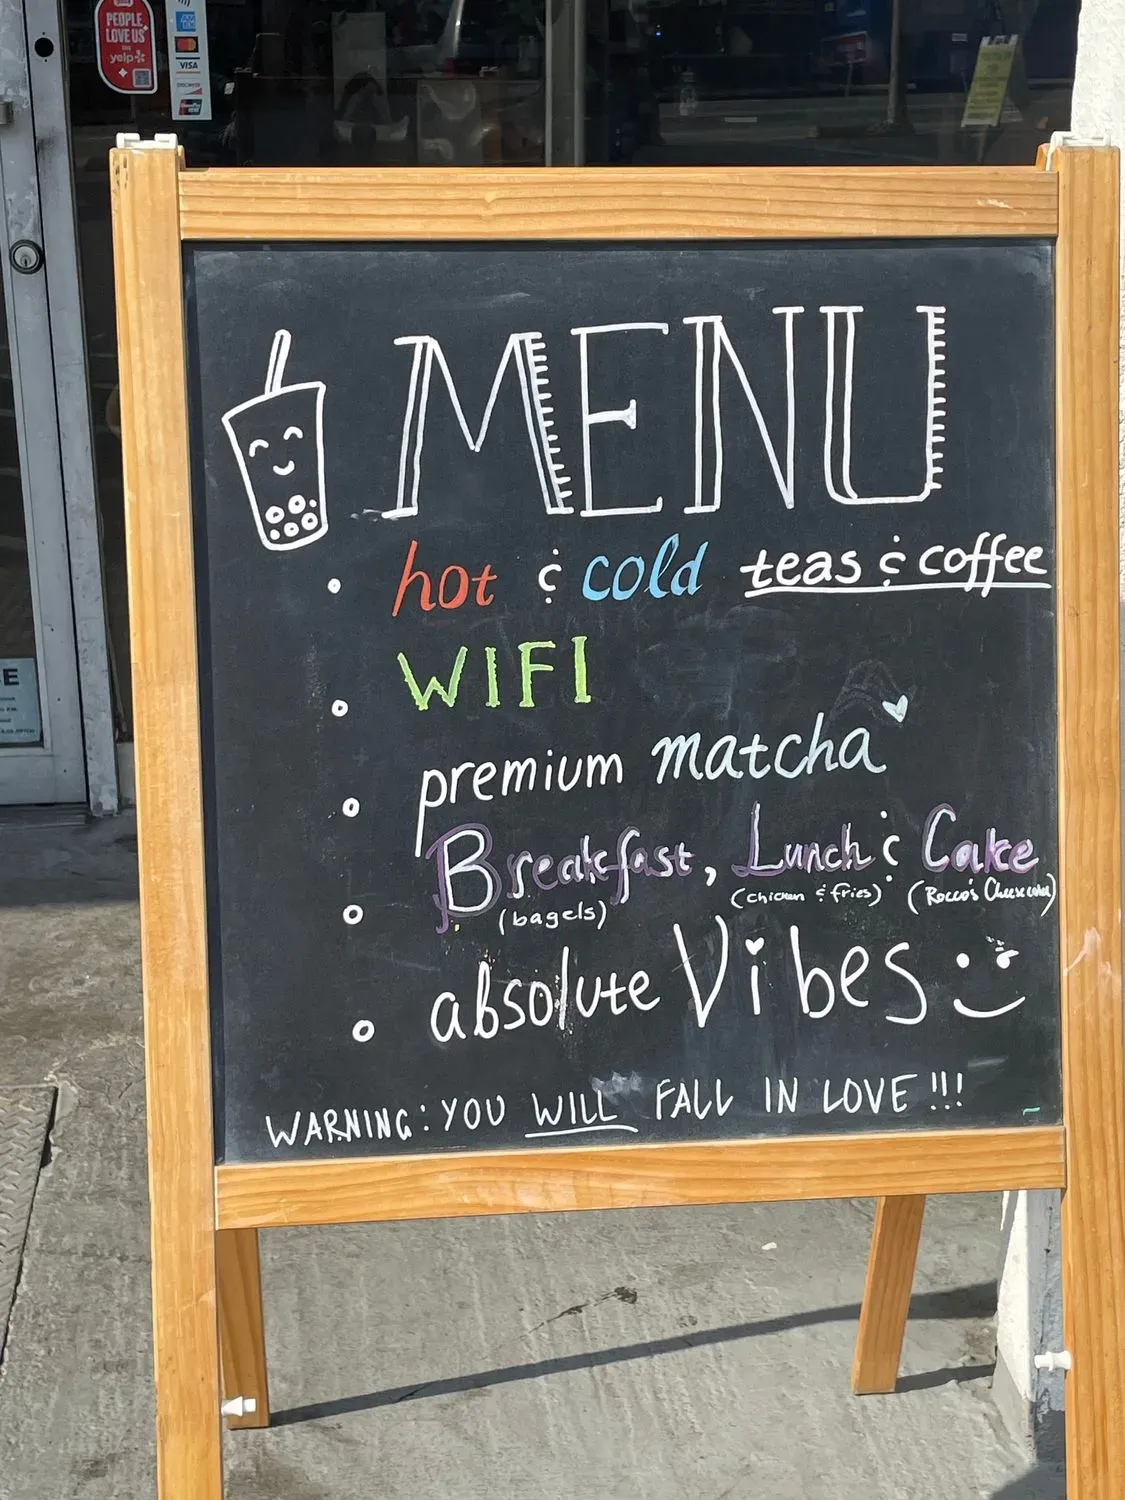 PEOPLE
LOVE US
ON
yelp
VISA
DISCOVER
MENU
hot & cold teas & coffee
WIFI
premium matcha
Breakfast, Lunch & Cake
(bagels) (chicken & fries) (Rocco's Cheesecake)
absolute Vibes
WARNING: YOU WILL FALL IN LOVE!!!